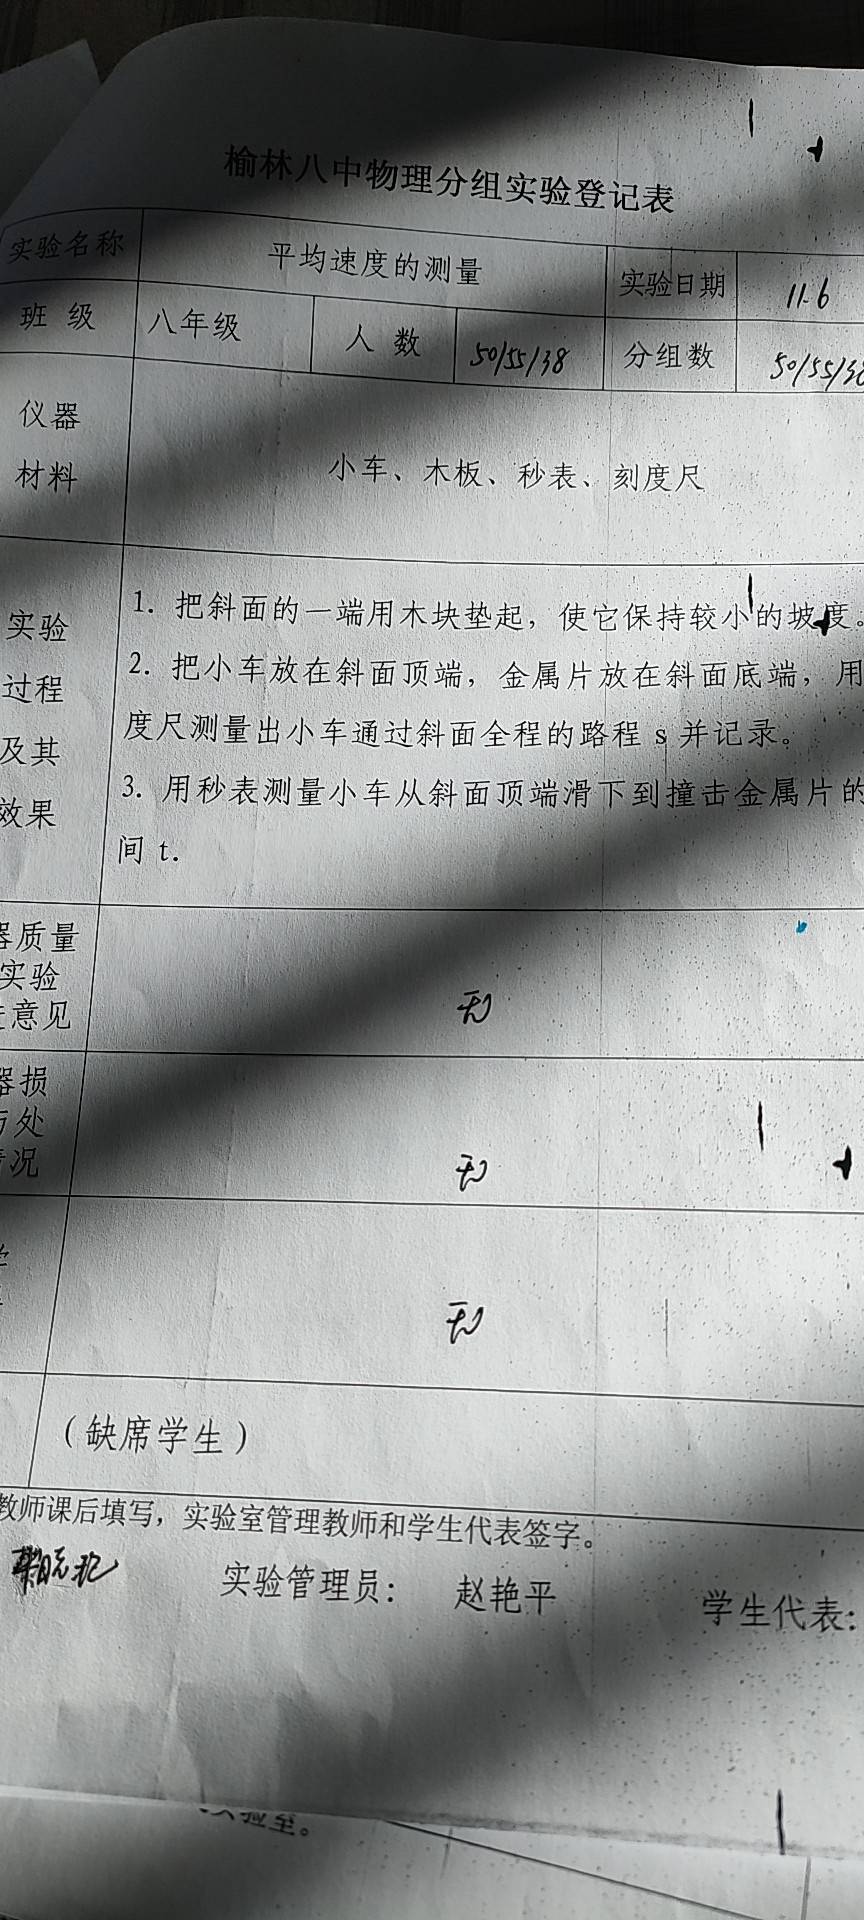 榆林八中物理分组实验登记表
实验名称 平均速度的测量 实验日期 11.6
班 级 八年级 人 数 50/55/38 分组数 50/55/38
仪器
材料
小车、木板、秒表、刻度尺
实验
过程
及其
效果
1. 把斜面的一端用木块垫起，使它保持较小的坡度。
2. 把小车放在斜面顶端，金属片放在斜面底端，用
度尺测量出小车通过斜面全程的路程 s 并记录。
3. 用秒表测量小车从斜面顶端滑下到撞击金属片的
间 t.
器质量
实验
意见
无
器损
处
况
无
无
（缺席学生）
教师课后填写，实验室管理教师和学生代表签字。
实验管理员： 赵艳平 学生代表：
验室。